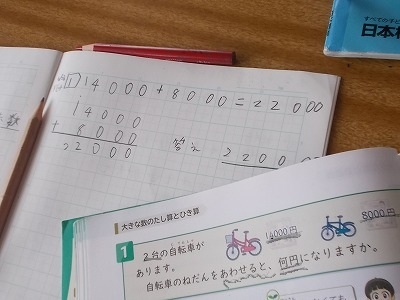 すべての子ど
日本標
1 14000+8000=22000
14000
+ 8000
22000
答え 2200
大きな数のたし算とひき算
1 2台の自転車が
あります。
14000円
8000円
自転車のねだんをあわせると、何円になりますか。